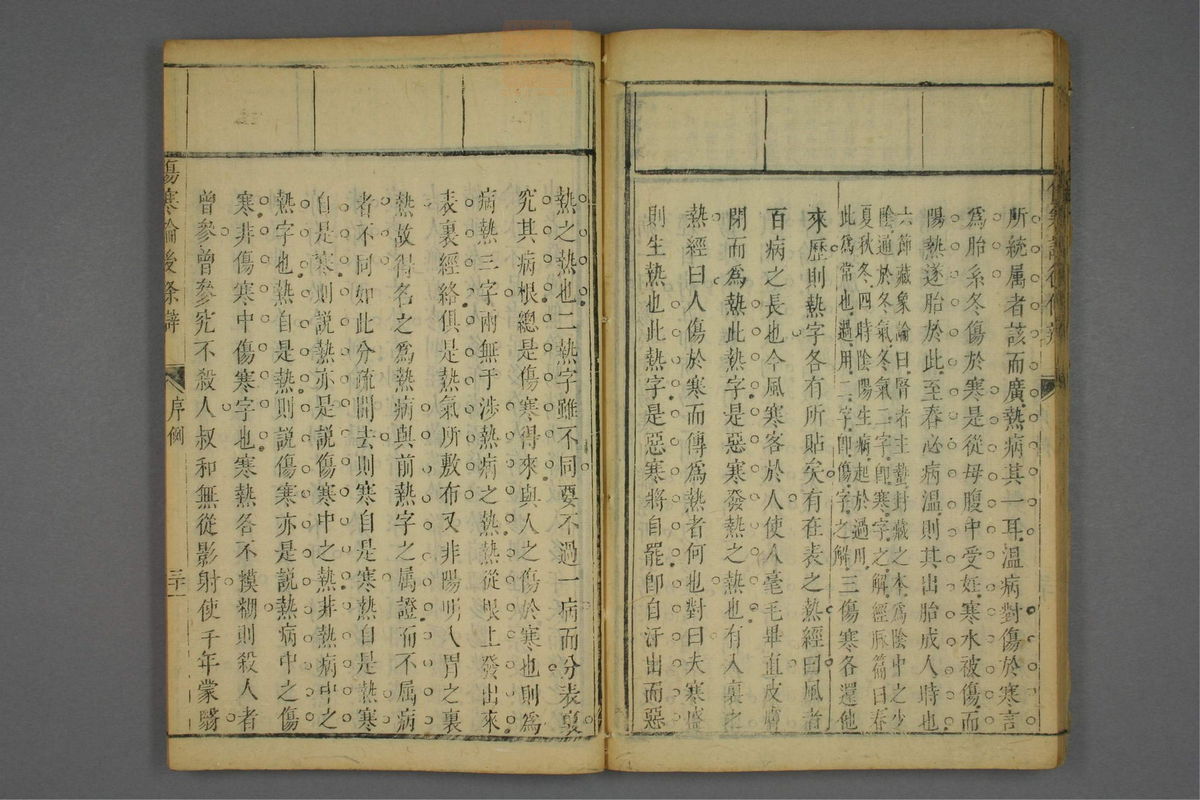 所統属者該而廣熱病其一耳溫病對傷於寒言
爲胎系冬傷於寒是從母腹中受妊寒水被傷而
陽熱遂胎於此至春必病溫則其出胎成人時也
六節藏象論曰腎者主蟄封藏之本爲陰中之少
陰通於冬氣冬氣二字卽寒字之解經脈篇曰春
夏秋冬四時陰陽生病起於過用
此爲常也過用二字卽傷字之解三傷寒各還他
來歷則熱字各有所貼矣有在表之熱經曰風者
百病之長也今風寒客於人使人毫毛畢直皮膚
閉而爲熱此熱字是惡寒發熱之熱也有入裏之
熱經曰人傷於寒而傳爲熱者何也對曰夫寒盛
則生熱也此熱字是惡寒將自罷卽自汗出而惡
熱之熱也二熱字雖不同要不過一病而分表裏
究其病根總是傷寒得來與人之傷於寒也則爲
病熱三字兩無干涉熱病之熱熱從根上發出來
表裏經絡俱是熱氣所敷布又非陽明入胃之裏
熱故得名之爲熱病與前熱字之属證而不属病
者不同如此分疏開去則寒自是寒熱自是熱寒
自是寒則説熱亦是説傷寒中之熱非熱病中之
熱字也熱自是熱則説傷寒亦是説熱病中之傷
寒非傷寒中傷寒字也寒熱各不模糊則殺人者
曾參曾參究不殺人叔和無從影射使千年蒙翳
傷寒論後條辯
序例
三十一